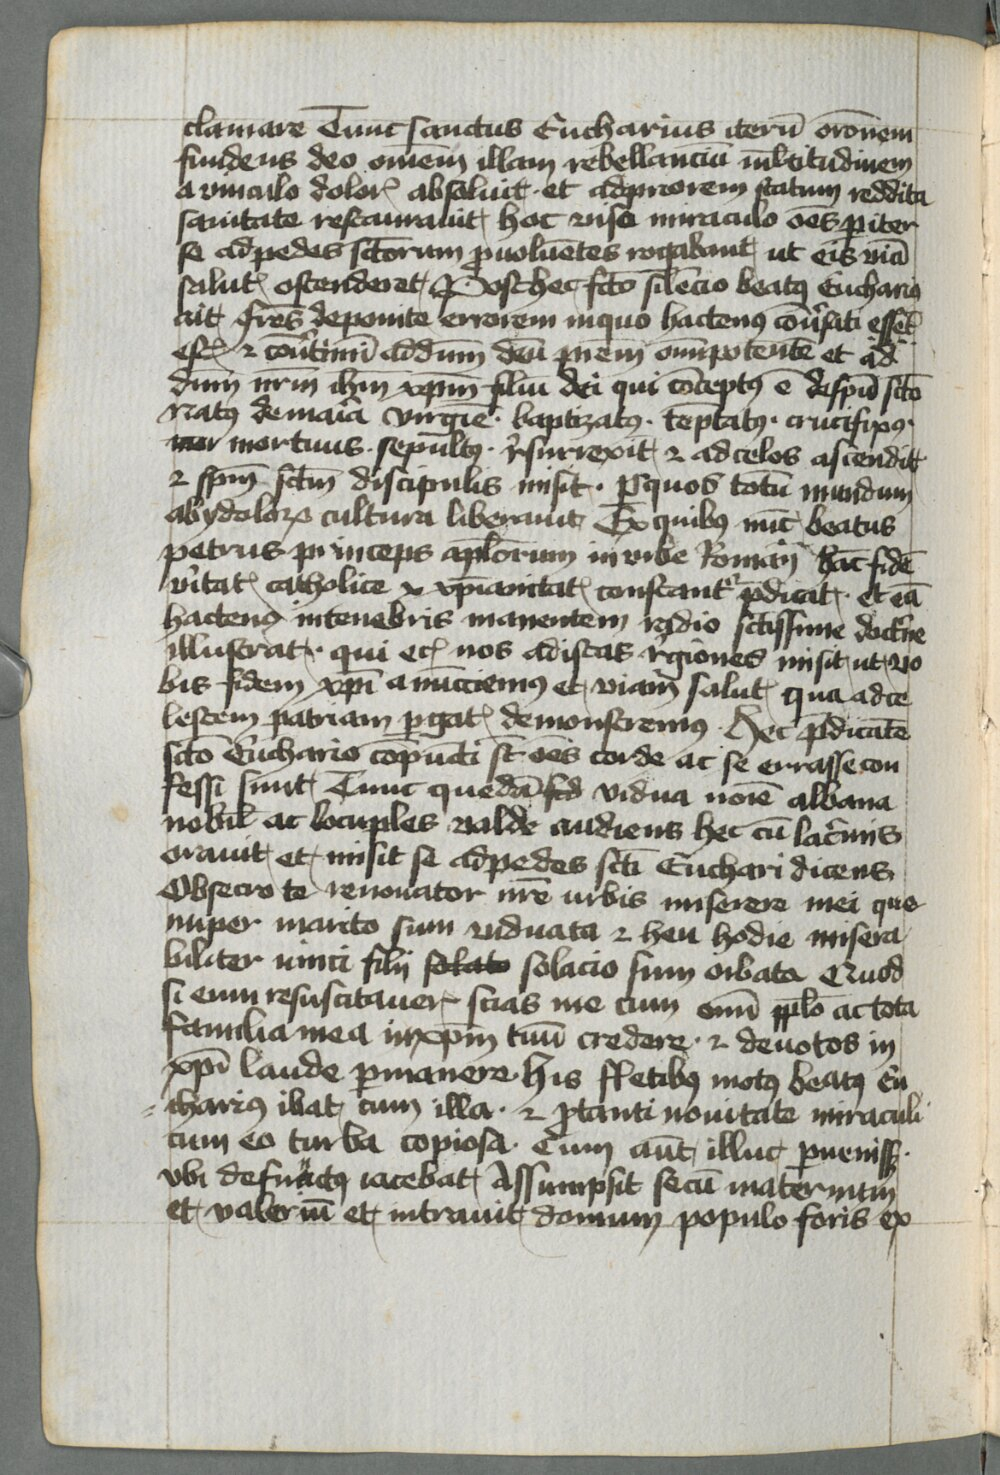 clamare Tunc sanctus Eucharius iterū orōnem
fundens deo om̄em illam rebellanciū ml̄titudinem
a vinculo dolorꝭ absoluit · et adpriorem statum reddita
sanitate restaurauit hoc viso miraculo oēs pariter
se adpedes sctorum ꝓuoluētes rogabant ut eis viā
salutꝭ ostenderet Post hec fcō silēcio beatꝯ Euchariꝯ
ait frēs deponite errorem inquo hactenꝯ cōu̓sati
et ad
dūm nrm̄ ihm̄ xpm̄ filiū dei qui cōceptꝯ ē despū sctō
natꝯ demaria virgīe · baptizatꝯ · teptatꝯ · crucifixꝯ ·
mortuus · sepultꝯ · rsurrexit ⁊ adcelos ascendit
⁊ spm̄ sctm̄ discipulis misit · Per quos totū mundum
abydolorꝝ cultura liberauit Ex quibꝯ nūc beatus
petrus princeps aplōrum in vrbe Roman̄ hāc fidē
vītatꝭ catholice ⁊ xp̄ianitatꝭ constant̓ p̄dicat · et eā
hactenꝯ intenebris manentem radio sctissime doctr̄ne
illustrat · qui ecꝭ nos adistas rgiōnes misit ut vo
bis fidem xpī anūcciemꝯ et viam salutꝭ qua adce
lestem patriam pergatꝭ demonstremꝯ · Hec p̄dicātē
sctō Euchario copūcti st̄ oēs corde ac se errasse con
fessi sunt Tunc quedā vidua noīē albana
nobilꝭ ac locuples valde audiens hec cū lacr̄mis
orauit et misit se adpedes sctī Euchari dicens
Obsecro te renouator nrē urbis miserere mei que
nuper marito sum viduata ⁊ heu hodie misera
biliter unici filij solacio sum orbata Quod
si eum resuscitauerꝭ scias me cum omī pplō ac tota
familia mea inxpm̄ tuū credere · ⁊ deuotos in
xpī laude permanere · His fletibꝯ motꝯ beatꝯ Eu
chariꝯ ibat cum illa · ⁊ ꝓtanti nouitate miraculi
cum eo turba copiosa · Cum aūt illuc peruenissꝫ ·
vbi defūctꝯ iacebat Assumpsit secū maternum
et valeriū et intrauit domum populo foris ex